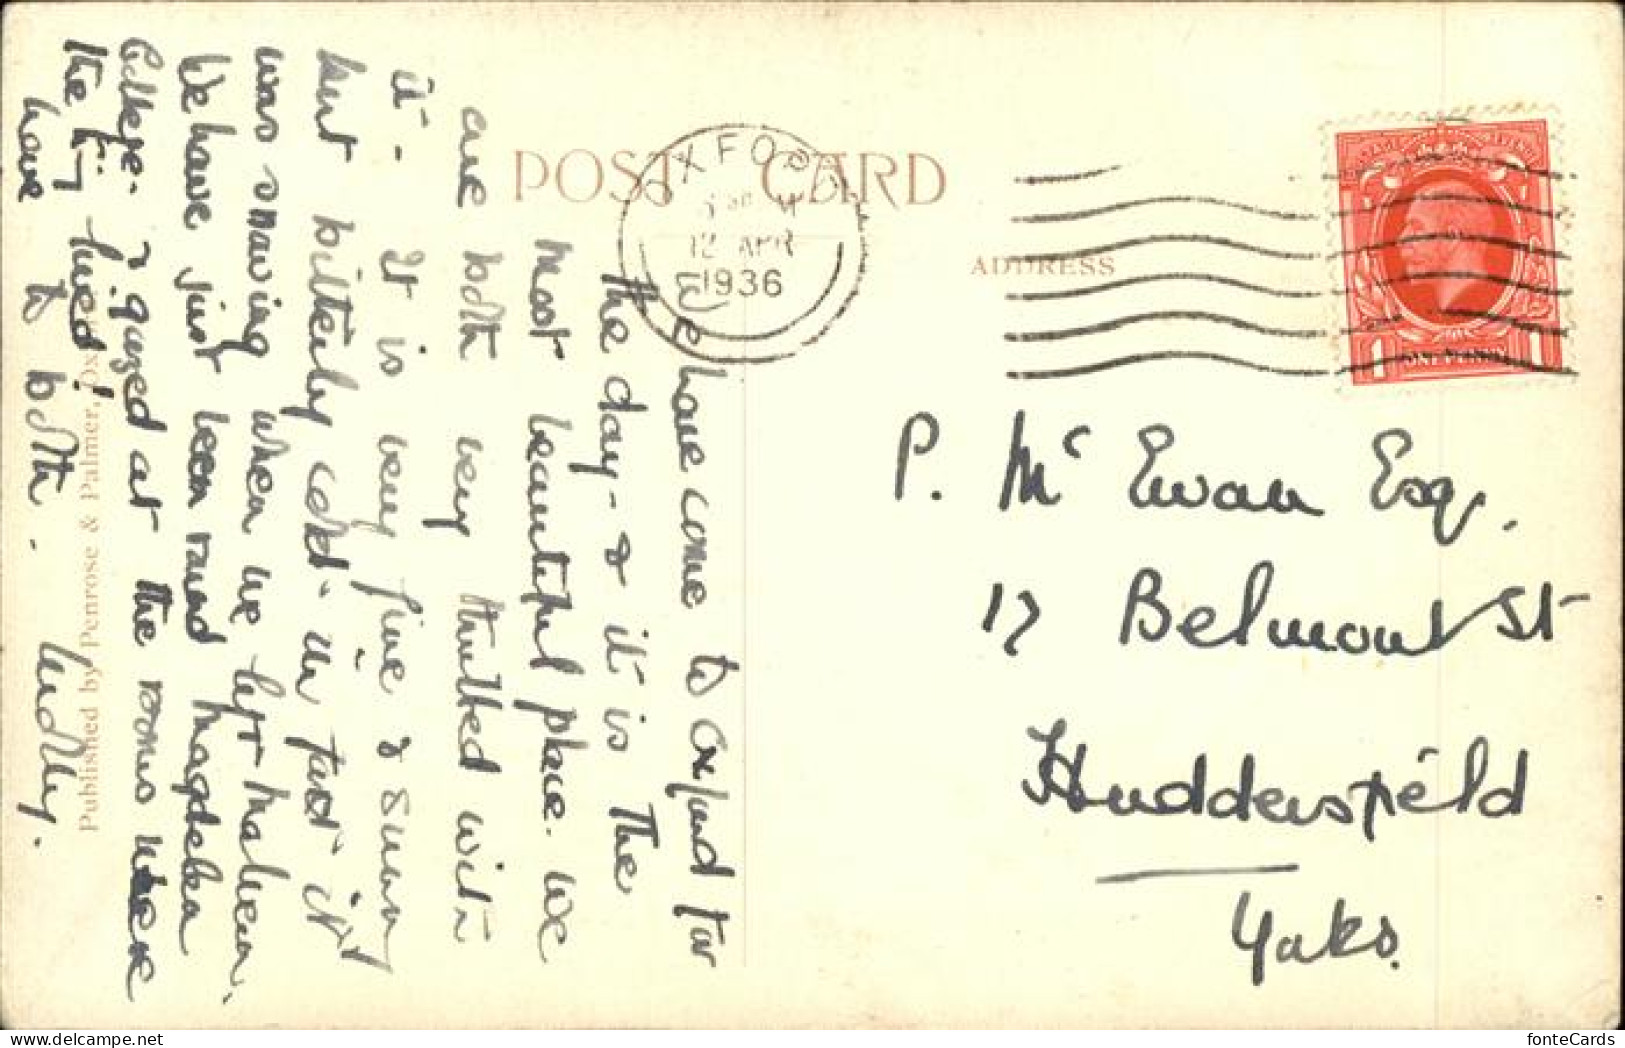 POST CARD
OXFORD
12 APR
1936
ADDRESS
1 ONE PENNY 1
P. Mc Ewan Esq.
17 Belmont St
Huddersfield
Yorks.
We have come to Oxford for
the day - & it is the
most beautiful place. we
are both very thrilled with
it - It is very fine & sunny
but bitterly cold - in fact it
was snowing when we left Malvern.
We have just been round Magdalen
College - & gazed at the rooms where
the King lived!
love to both.
Published by Penrose & Palmer, Ox
fonteCards